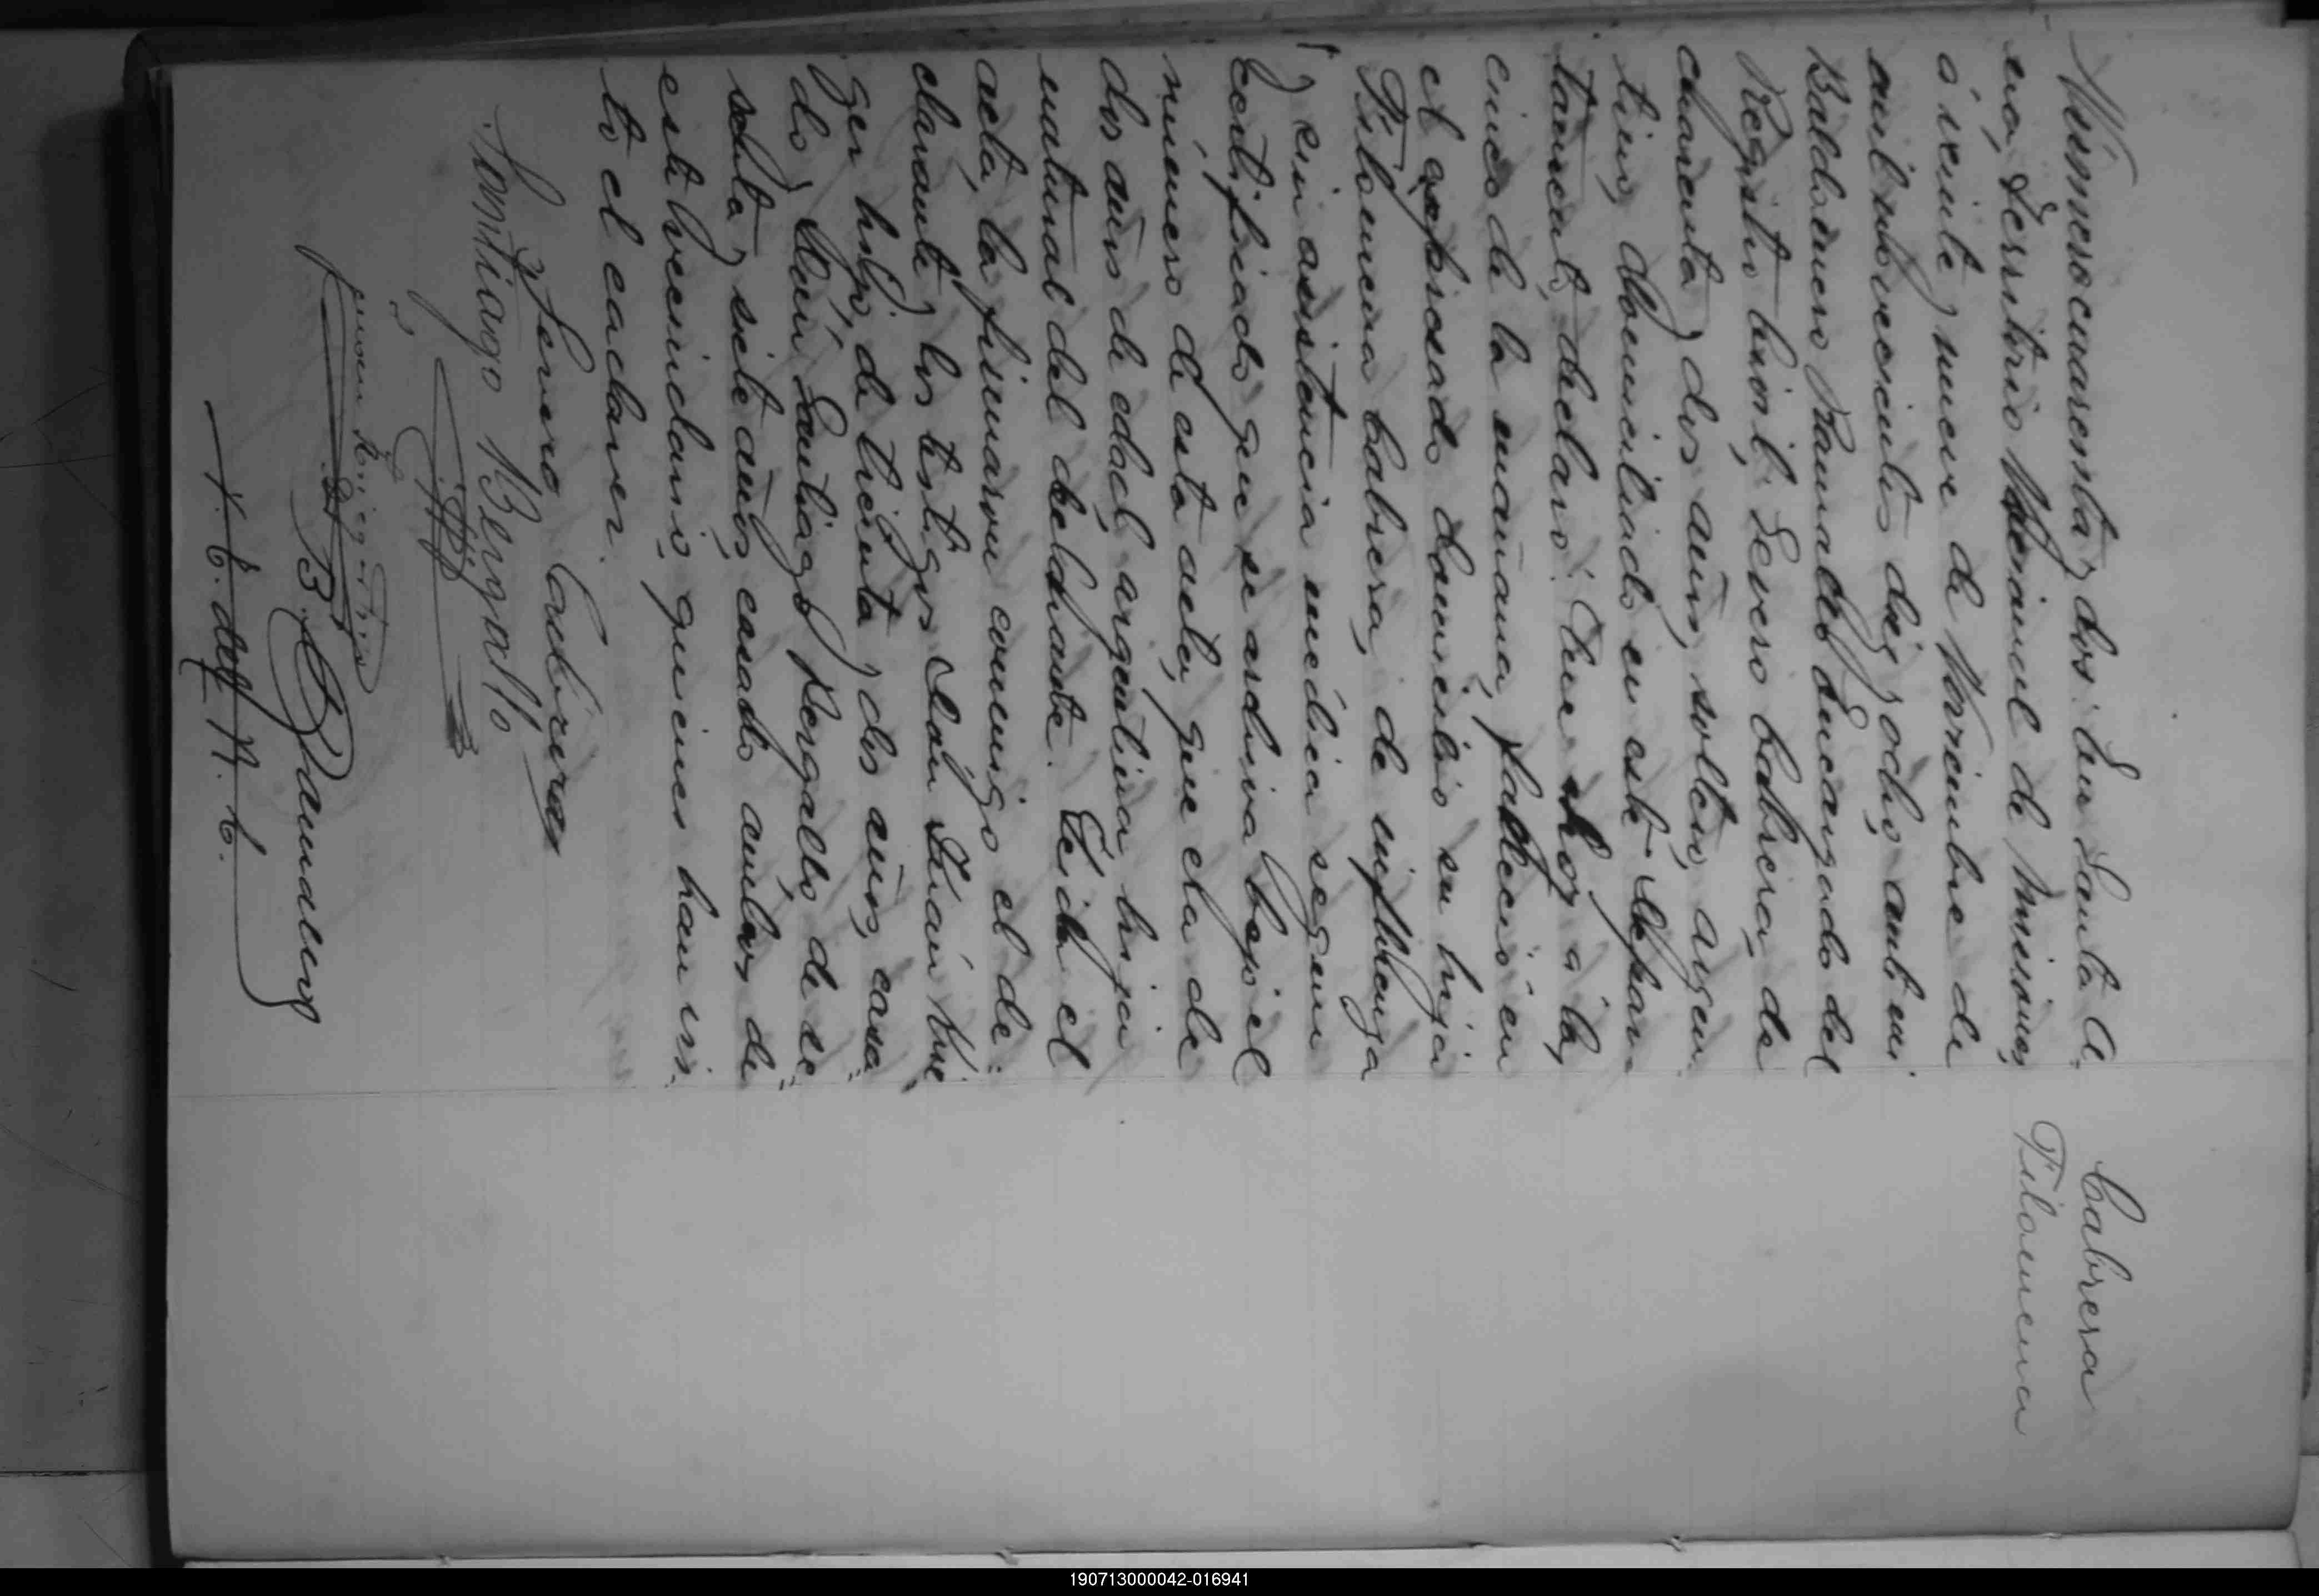 Cabrera
Filomena
Número cuarenta y dos: En Santa A-
na, Territorio Nacional de Misiones,
á veinte y nueve de Noviembre de
mil novecientos diez y ocho, ante mi
Baldomero Ramallo Encargado del
Registro Civil, Severo Cabrera, de
cuarenta y dos años, soltero, argen-
tino, domiciliado en este Depar-
tamento, declaró: Que hoy a las
cinco de la mañana, falleció en
el expresado domicilio su hija
Filomena Cabrera, de influenza
y sin asistencia médica segun
certificado que se archiva bajo el
número de esta acta, que era de
dos años de edad, argentina, hija
natural del declarante. Leida el
acta, la firmaron conmigo el de-
clarante y los testigos Don Juan
ger hijo, de treinta y dos años, casa-
do, y Don Santiago Bergallo, de se-
senta y siete años, casado, ambos de
este vecindario, quienes han vis-
to el cadaver.
Severo Cabrera
Santiago Bergallo
B. Ramallo